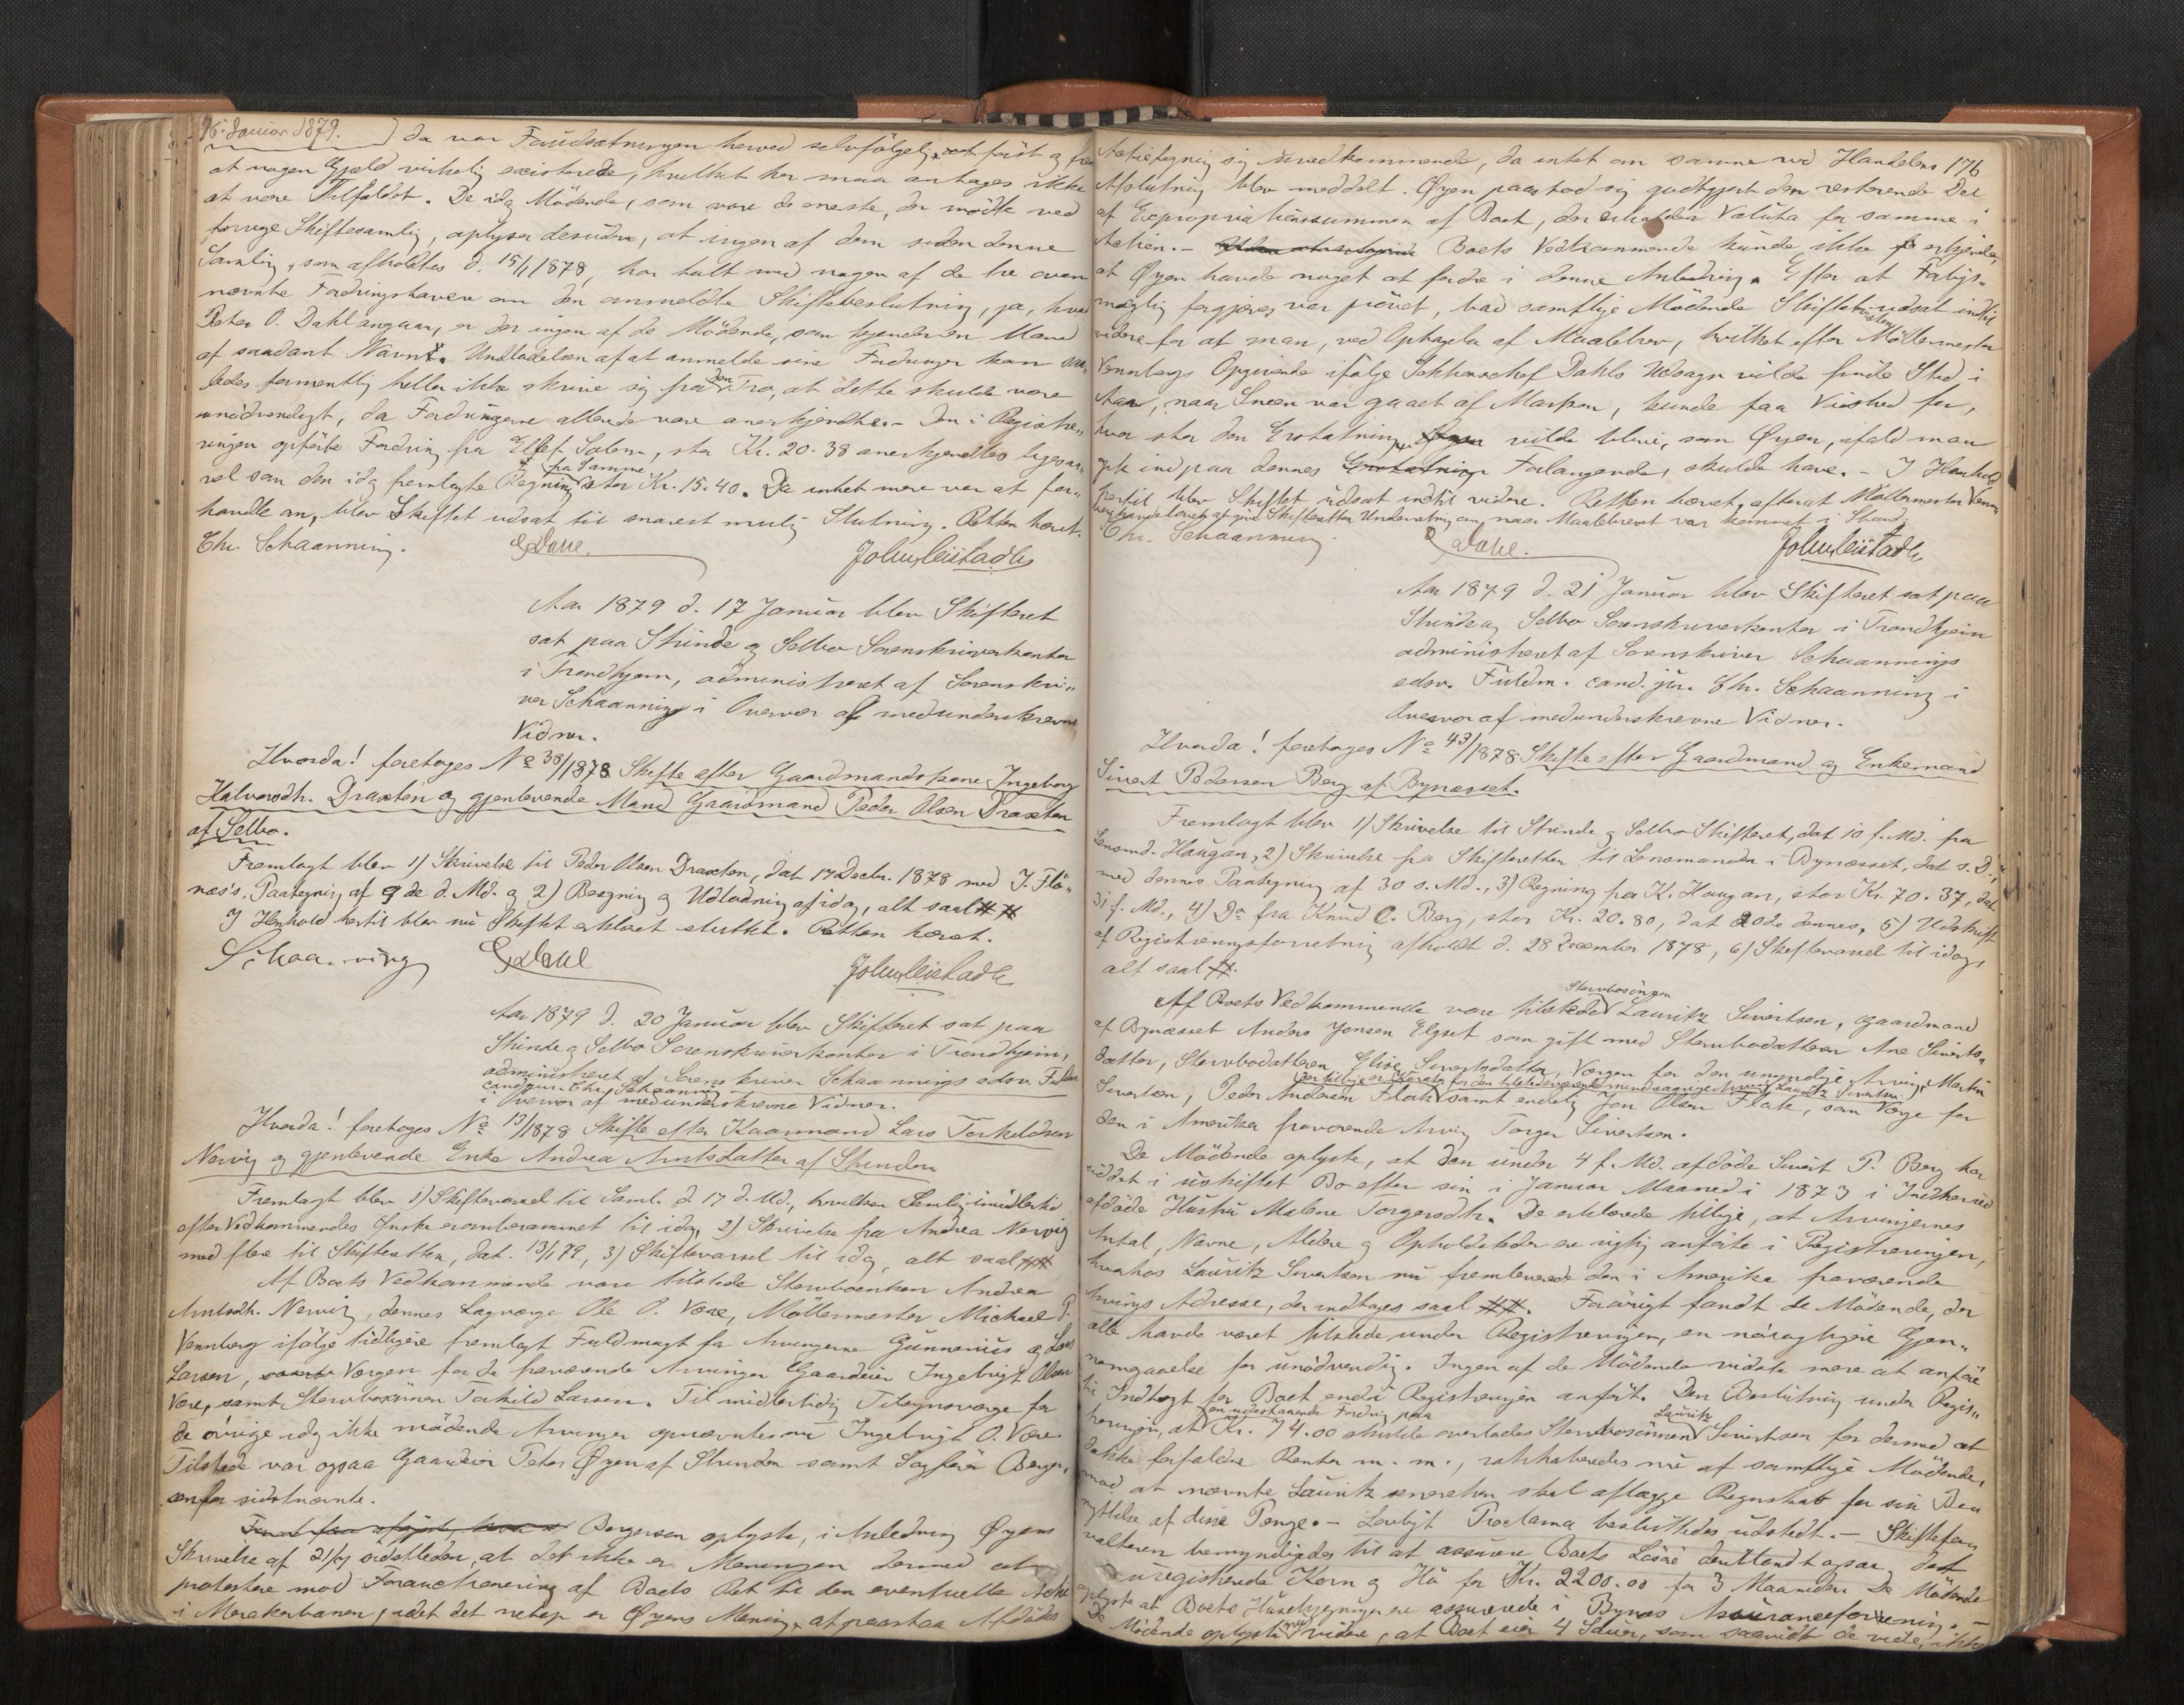 16. Januar 1879. da var Forudsætningen herved selvfølgelig, først og frem
at nogen Gjæld virkelig existerede, hvilket her maa antages ikke
at være Tilfældet. De idag Mödende, som vare de eneste, der mödte ved
forrige Skiftesamling, oplyser desuden, at ingen af dem siden denne
Samling, som afholdtes d. 15/1 1878, har talt med nogen af de tre oven
nævnte Fordringshavere om den anmeldte Skiftebeslutning, ja, hvad
Peter O. Dahl angaar, er der ingen af de Mödende, som kjender en Mand
af saadant Navn. Undladelsen af at anmelde sine Fordringer kan saa„
ledes formentlig heller ikke skrive sig fra den Tro, at dette skulde være
unödvendigt, da Fordringerne allerede vare anerkjendte. - Den i Registre„
ringen opförte Fordring fra Ellef Solem, stor Kr. 20.38 anerkjendtes ligesaa„
vel som den idag fremlagte Regning fra Samme stor Kr. 15.40. Da intet mere var at for„
handle om, blev Skiftet udsat til snarest mulig Slutning. Retten hævet.
Chr. Schaanning. EDahl. John Leistadt
Aar 1879 d. 17 Januar blev Skifteret
sat paa Strinde og Selbo Sorenskriverkontor
i Trondhjem, administreret af Sorenskri„
ver Schaanning i Overvær af medunderskrevne
Vidner.
Hvorda! foretoges No 38/1878 Skifte efter Gaardmandskone Ingeborg
Halvorsdtr. Draxten og gjenlevende Mand Gaardmand Peder Olsen Draxten
af Selbo.
Fremlagt blev 1) Skrivelse til Peder Olsen Draxten, dat. 17 Decbr. 1878 med J. Flö„
næs's Paategning af 9de d. Md. og 2) Beregning og Udlodning af idag, alt saal. ##
I Henhold hertil blev nu Skiftet erklæret sluttet. Retten hævet.
Schaanning EDahl John Leistadt
Aar 1879 d. 20 Januar blev Skifteret sat paa
Strinde og Selbo Sorenskriverkontor i Trondhjem,
administreret af Sorenskriver Schaannings edsv. Fuldm.
cand. jur. Chr. Schaanning
i Overvær af medunderskrevne Vidner.
Hvorda! foretoges No 13/1878 Skifte efter Kaarmand Lars Torkildsen
Nervig og gjenlevende Enke Andrea Arntsdatter af Strinden
Fremlagt blev 1) Skiftevarsel til Saml. d. 17 d. Md., hvilken Samling imidlertid
efter Vedkommendes Ønske er omberammet til idag, 2) Skrivelse fra Andrea Nervig
med flere til Skifteretten, dat. 13/1 79, 3) Skiftevarsel til idag, alt saal. ##
Af Boets Vedkommende vare tilstede Stervboenken Andrea
Arntsdtr. Nervig, dennes Lagværge Ole O. Være, Møllermester Michael P.
Vennberg ifølge tidligere fremlagt Fuldmagt fra Arvingerne Gunnerius og Lars
Larsen, Værgen for de fraværende Arvinger Gaardeier Ingebrigt Olsen
Være, samt Stervbosönnen Torkild Larsen. Til midlertidig Tilsynsværge for
de övrige idag ikke mödende Arvinger opnævntes nu Ingebrigt O. Være.
Tilstede var ogsaa Gaardeier Peter Øyen af Strinden samt Sagförer Berger„
sen for sidstnævnte.
Bergersen oplyste, i Anledning Øyens
Skrivelse af 21/9 sidstleden, at det ikke er Meningen dermed at
protestere mod Forauctionering af Boets Ret til den eventuelle Actie
i Merakerbanen, idet det netop er Øyens Mening, at paastaa Afdödes
Actietegning sig uvedkommende, da intet om samme ved Handelens 176
Afslutning blev meddelt. Øyen paastod sig godtgjort den resterende Del
af Expropriationssummen af Boet, der erholder Valuta for samme i
Actien. - Boets Vedkommende kunde ikke erkjende,
at Øyen havde noget at fordre i denne Anledning. Efter at Forligs„
mægling forgjæves var prövet, bad samtlige Mödende Skiftet udsat indtil
videre for at man, ved Optagelse af Maalebrev, hvilket efter Möllermester
Vennbergs Opgivende ifølge Sektionschef Dahls Udsagn vilde finde Sted i
Vaar, naar Sneen var gaaet af Marken, kunde faa Vished for,
hvor stor den Erstatning vilde blive, som Øyen, ifald man
gik ind paa dennes Forlangende, skulde have. - I Henhold
hertil blev Skiftet udsat indtil videre. Retten hævet, efterat Möllermester Venn„
berg havde lovet at give Skifteretten Underretning om, naar Maalebrevet var kommet i Stand.
Chr. Schaanning. EDahl. John Leistadt
Aar 1879 d. 21 Januar blev Skifteret sat paa
Strinde og Selbo Sorenskriverkontor i Trondhjem
administreret af Sorenskriver Schaannings
edsv. Fuldm. cand. jur. Chr. Schaanning i
Overvær af medunderskrevne Vidner.
Hvorda! foretoges No 43/1878 Skifte efter Gaardmand og Enkemand
Sivert Pedersen Berg af Bynæsset.
Fremlagt blev 1) Skrivelse til Strinde og Selbo Skifteret, dat. 10 f. Md. fra
Lensmd. Haugan, 2) Skrivelse fra Skifteretten til Lensmanden i Bynæsset, dat. s. D.,
med dennes Paategning af 30 s. Md., 3) Regning fra K. Haugan, stor Kr. 70.37, dat.
31 f. Md., 4) Do fra Knud C. Berg, stor Kr. 20.80, dat. 20de dennes, 5) Udskrift
af Registreringsforretning afholdt d. 28 December 1878, 6) Skiftevarsel til idag,
alt saal. #.
Af Boets Vedkommende vare tilstede Stervbosönnen Lauritz Sivertsen, Gaardmand
af Bynæsset Anders Jonsen Elgset som gift med Stervbodatteren Ane Siverts„
datter, Stervbodatteren Elise Sivertsdatter, Værgen for den umyndige Arving Martin
Sivertsen, Peder Andersen Flak der tillige er Curator for den tilstedeværende mindreaarige Arving Lauritz Sivertsen samt endelig Jon Olsen Flak, som Værge for
den i Amerika fraværende Arving Torger Sivertsen.
De Mödende oplyste, at den under 4 f. Md. afdöde Sivert P. Berg har
siddet i uskiftet Bo efter sin i Januar Maaned i 1873 i Inderherred
afdöde Hustru Malene Torgersdtr. De erklærede tillige, at Arvingernes
Antal, Navne, Aldere og Opholdssteder ere rigtig anförte i Registreringen,
hvorhos Lauritz Sivertsen nu fremleverede den i Amerika fraværende
Arvings Adresse, der indtages saal. ##. Forövrigt fandt de Mödende, der
alle havde været tilstede under Registreringen, en nöiagtigere Gjen„
nemgaaelse for unödvendig. Ingen af de Mödende vidste mere at anföre
til Indtægt for Boet end i Registreringen anfört. Den Beslutning under Regis„
treringen, at en udestaaende Fordring paa Kr. 74.00 skulde overlades Stervbosönnen Lauritz Sivertsen for dermed at
dække forfaldne Renter m. m., ratihaberedes nu af samtlige Mödende,
mod at nævnte Lauritz senerehen skal aflægge Regnskab for sin Be„
nyttelse af disse Penge. - Lovligt Proclama besluttedes udstedt. - Skiftefor„
valteren bemyndigedes til at assurere Boets Lösöre deriblandt ogsaa det
uregistrerede Korn og Hö for Kr. 2200.00 for 3 Maaneder. De Mödende
oplyste at Boets Husebygninger ere assurerede i Bynæs Assuranceforening. -
De Mödende oplyste nu videre, at Boet eier 4 Sauer, som saavidt de vide, ikke